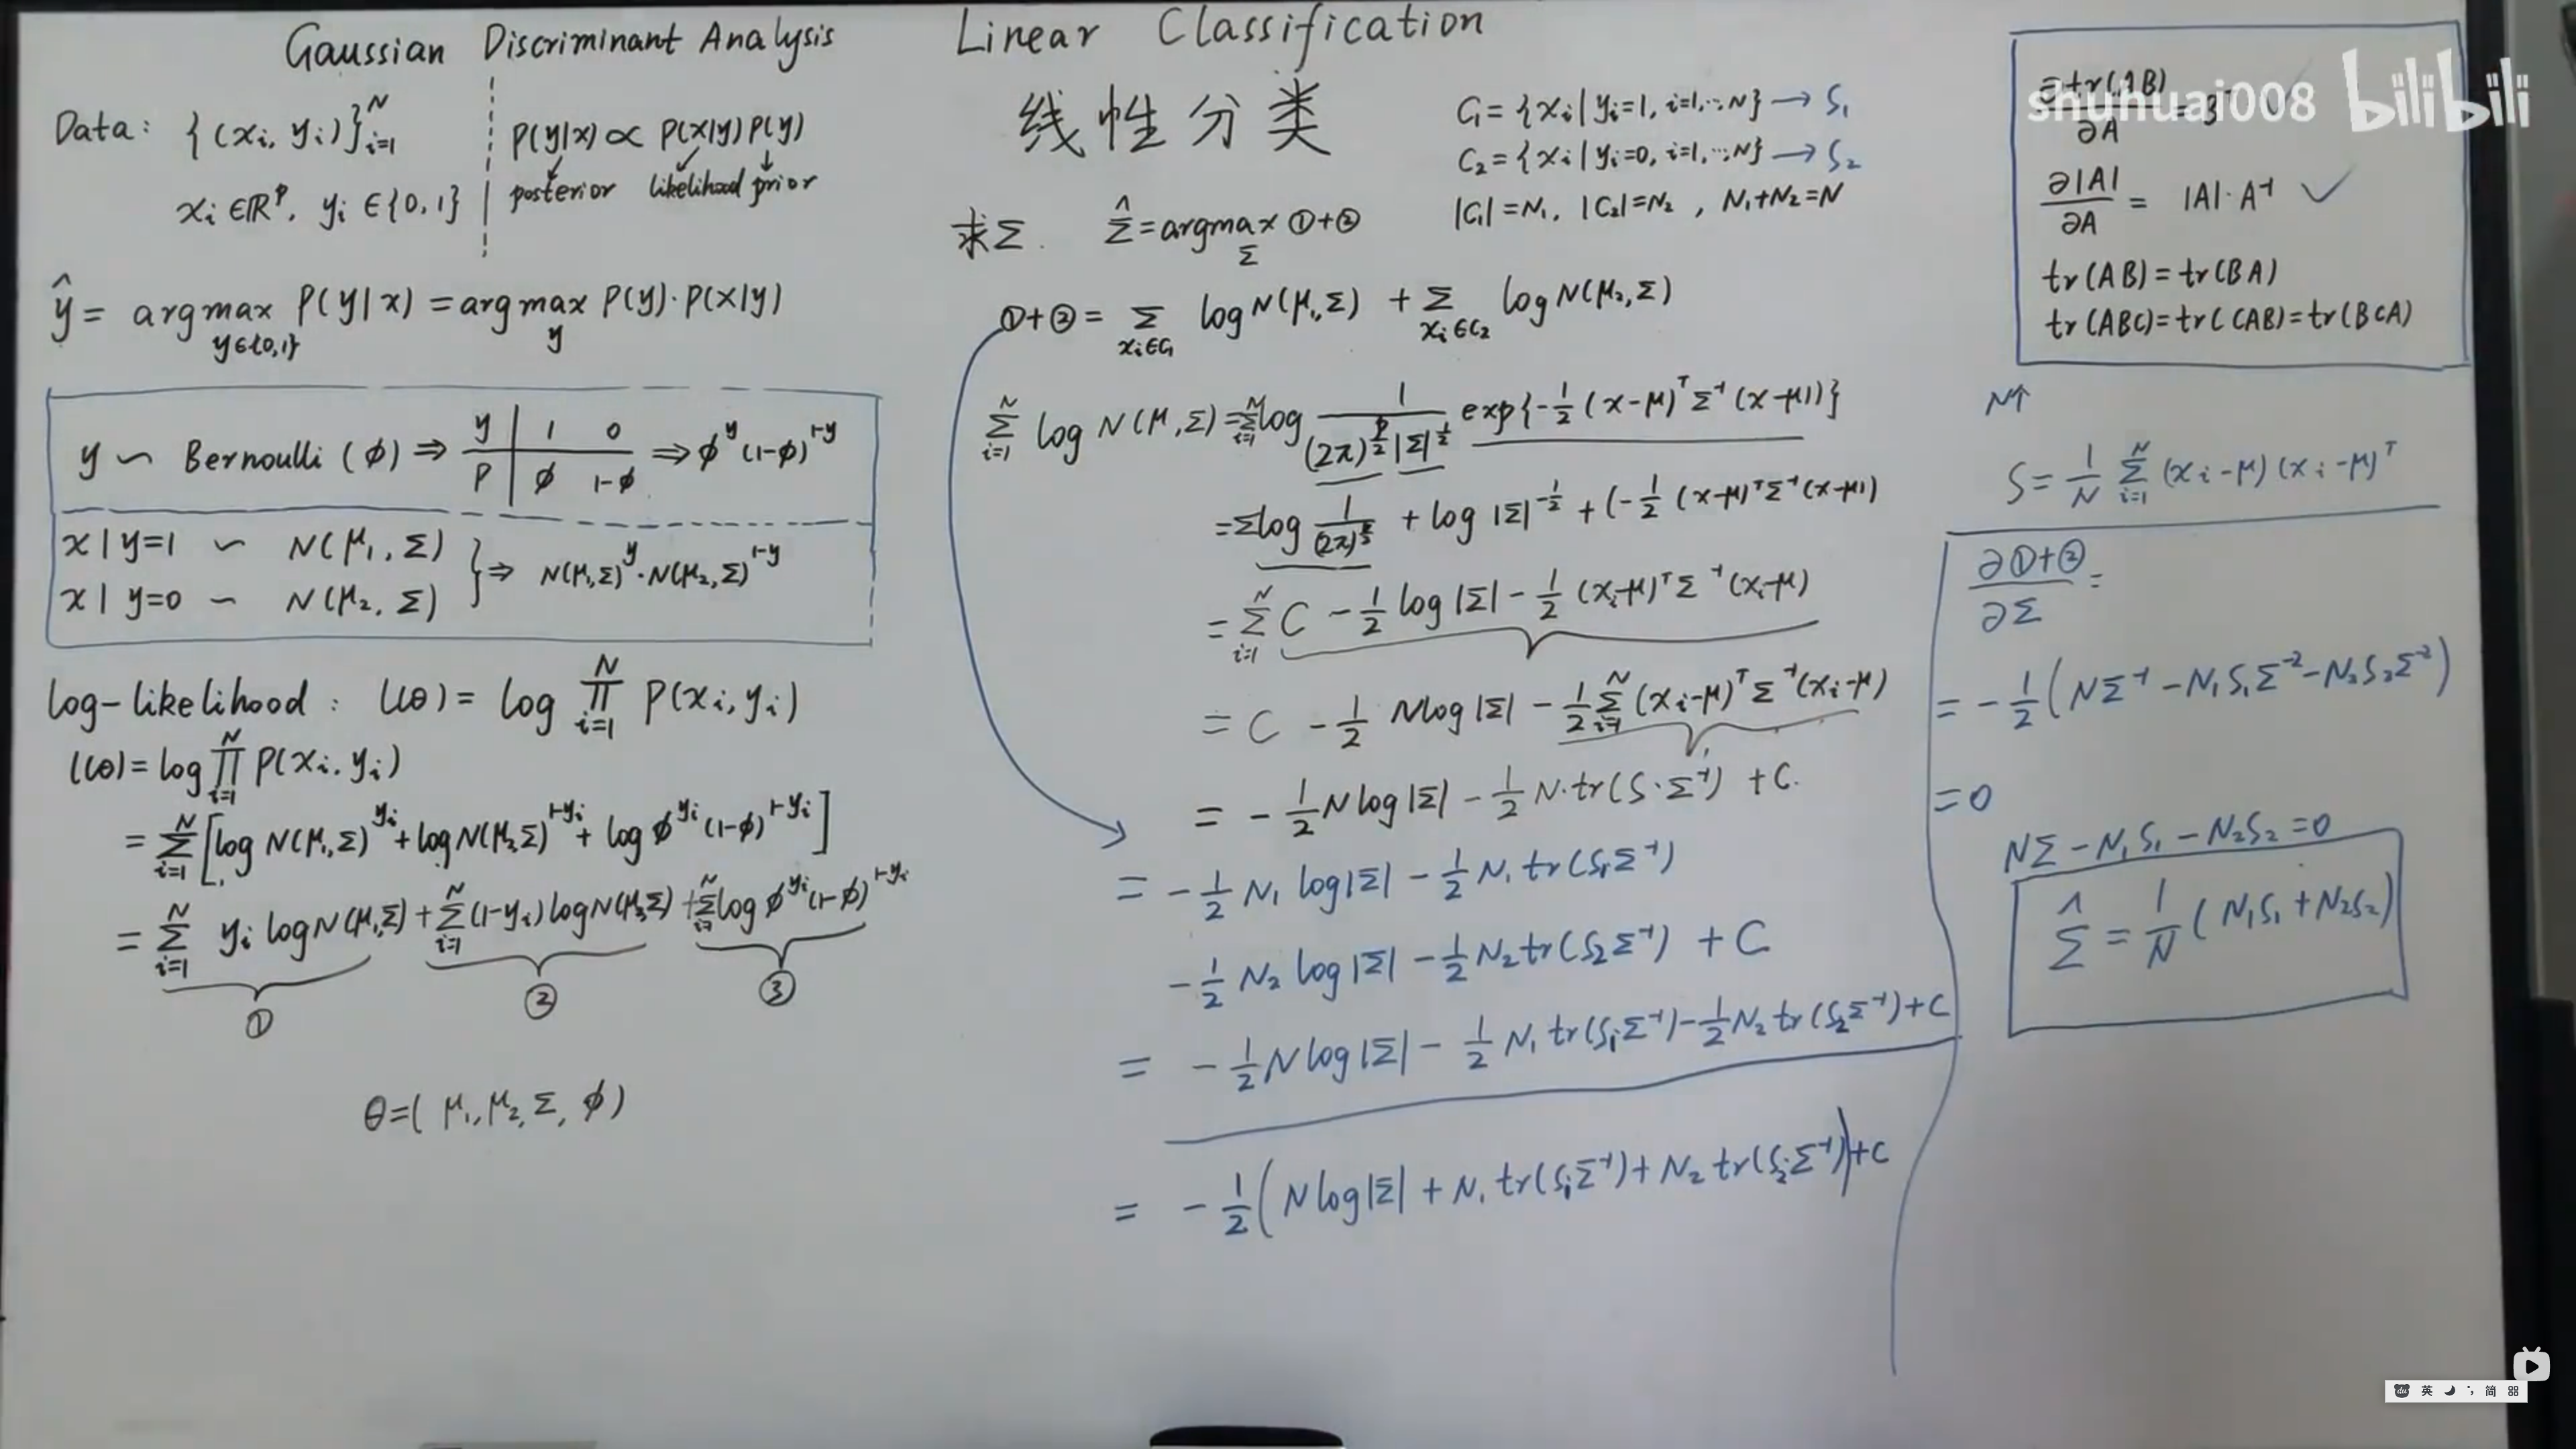 Gaussian Discriminant Analysis
Data: {(xi, yi)}_{i=1}^{N}
xi ∈ ℝ^p, yi ∈ {0, 1}
P(y|x) ∝ P(x|y) P(y)
posterior likelihood prior
ŷ = argmax_{y∈{0,1}} P(y|x) = argmax_y P(y)·P(x|y)
y ∽ Bernoulli (φ) ⇒ y | 1 0 ⇒ φ^y (1-φ)^{1-y}
P | φ 1-φ
x|y=1 ∽ N(μ₁, Σ)
x|y=0 ∽ N(μ₂, Σ)
} ⇒ N(μ₁,Σ)^y · N(μ₂,Σ)^{1-y}
log-likelihood: l(θ) = log ∏_{i=1}^{N} P(xi, yi)
l(θ) = log ∏_{i=1}^{N} P(xi, yi)
= Σ_{i=1}^{N} [log N(μ₁,Σ)^{yi} + log N(μ₂,Σ)^{1-yi} + log φ^{yi} (1-φ)^{1-yi}]
= Σ_{i=1}^{N} yi log N(μ₁,Σ) + Σ_{i=1}^{N} (1-yi) log N(μ₂,Σ) + Σ_{i=1}^{N} log φ^{yi} (1-φ)^{1-yi}
① ② ③
θ=( μ₁, μ₂, Σ, φ)
Linear Classification
线性分类
C₁ = {xi | yi=1, i=1,…,N} → S₁
C₂ = {xi | yi=0, i=1,…,N} → S₂
|C₁| = N₁, |C₂| = N₂, N₁+N₂=N
求Σ. Σ̂ = argmax_Σ ①+②
①+② = Σ_{xi∈C₁} log N(μ₁,Σ) + Σ_{xi∈C₂} log N(μ₂,Σ)
Σ_{i=1}^{N} log N(μ,Σ) = Σ_{i=1}^{N} log 1/((2π)^{p/2} |Σ|^{1/2}) exp{-1/2 (x-μ)^T Σ^{-1} (x-μ)}
= Σ log 1/(2π)^{p/2} + log |Σ|^{-1/2} + (-1/2 (x-μ)^T Σ^{-1} (x-μ))
= Σ_{i=1}^{N} C - 1/2 log|Σ| - 1/2 (xi-μ)^T Σ^{-1} (xi-μ)
= C - 1/2 N log|Σ| - 1/2 Σ_{i=1}^{N} (xi-μ)^T Σ^{-1} (xi-μ)
= - 1/2 N log|Σ| - 1/2 N·tr(S·Σ^{-1}) + C.
= - 1/2 N₁ log|Σ| - 1/2 N₁ tr(S₁Σ^{-1})
- 1/2 N₂ log|Σ| - 1/2 N₂ tr(S₂Σ^{-1}) + C
= - 1/2 N log|Σ| - 1/2 N₁ tr(S₁Σ^{-1}) - 1/2 N₂ tr(S₂Σ^{-1}) + C
= - 1/2 (N log|Σ| + N₁ tr(S₁Σ^{-1}) + N₂ tr(S₂Σ^{-1})) + C
shuhuai008 bilibili
∂tr(AB)/∂A =
∂|A|/∂A = |A|·A^{-1} ✓
tr(AB) = tr(BA)
tr(ABC) = tr(CAB) = tr(BCA)
N↑
S = 1/N Σ_{i=1}^{N} (xi-μ)(xi-μ)^T
∂①+②/∂Σ =
= - 1/2 (NΣ^{-1} - N₁S₁Σ^{-2} - N₂S₂Σ^{-2})
= 0
NΣ - N₁S₁ - N₂S₂ = 0
Σ̂ = 1/N (N₁S₁ + N₂S₂)
英 简